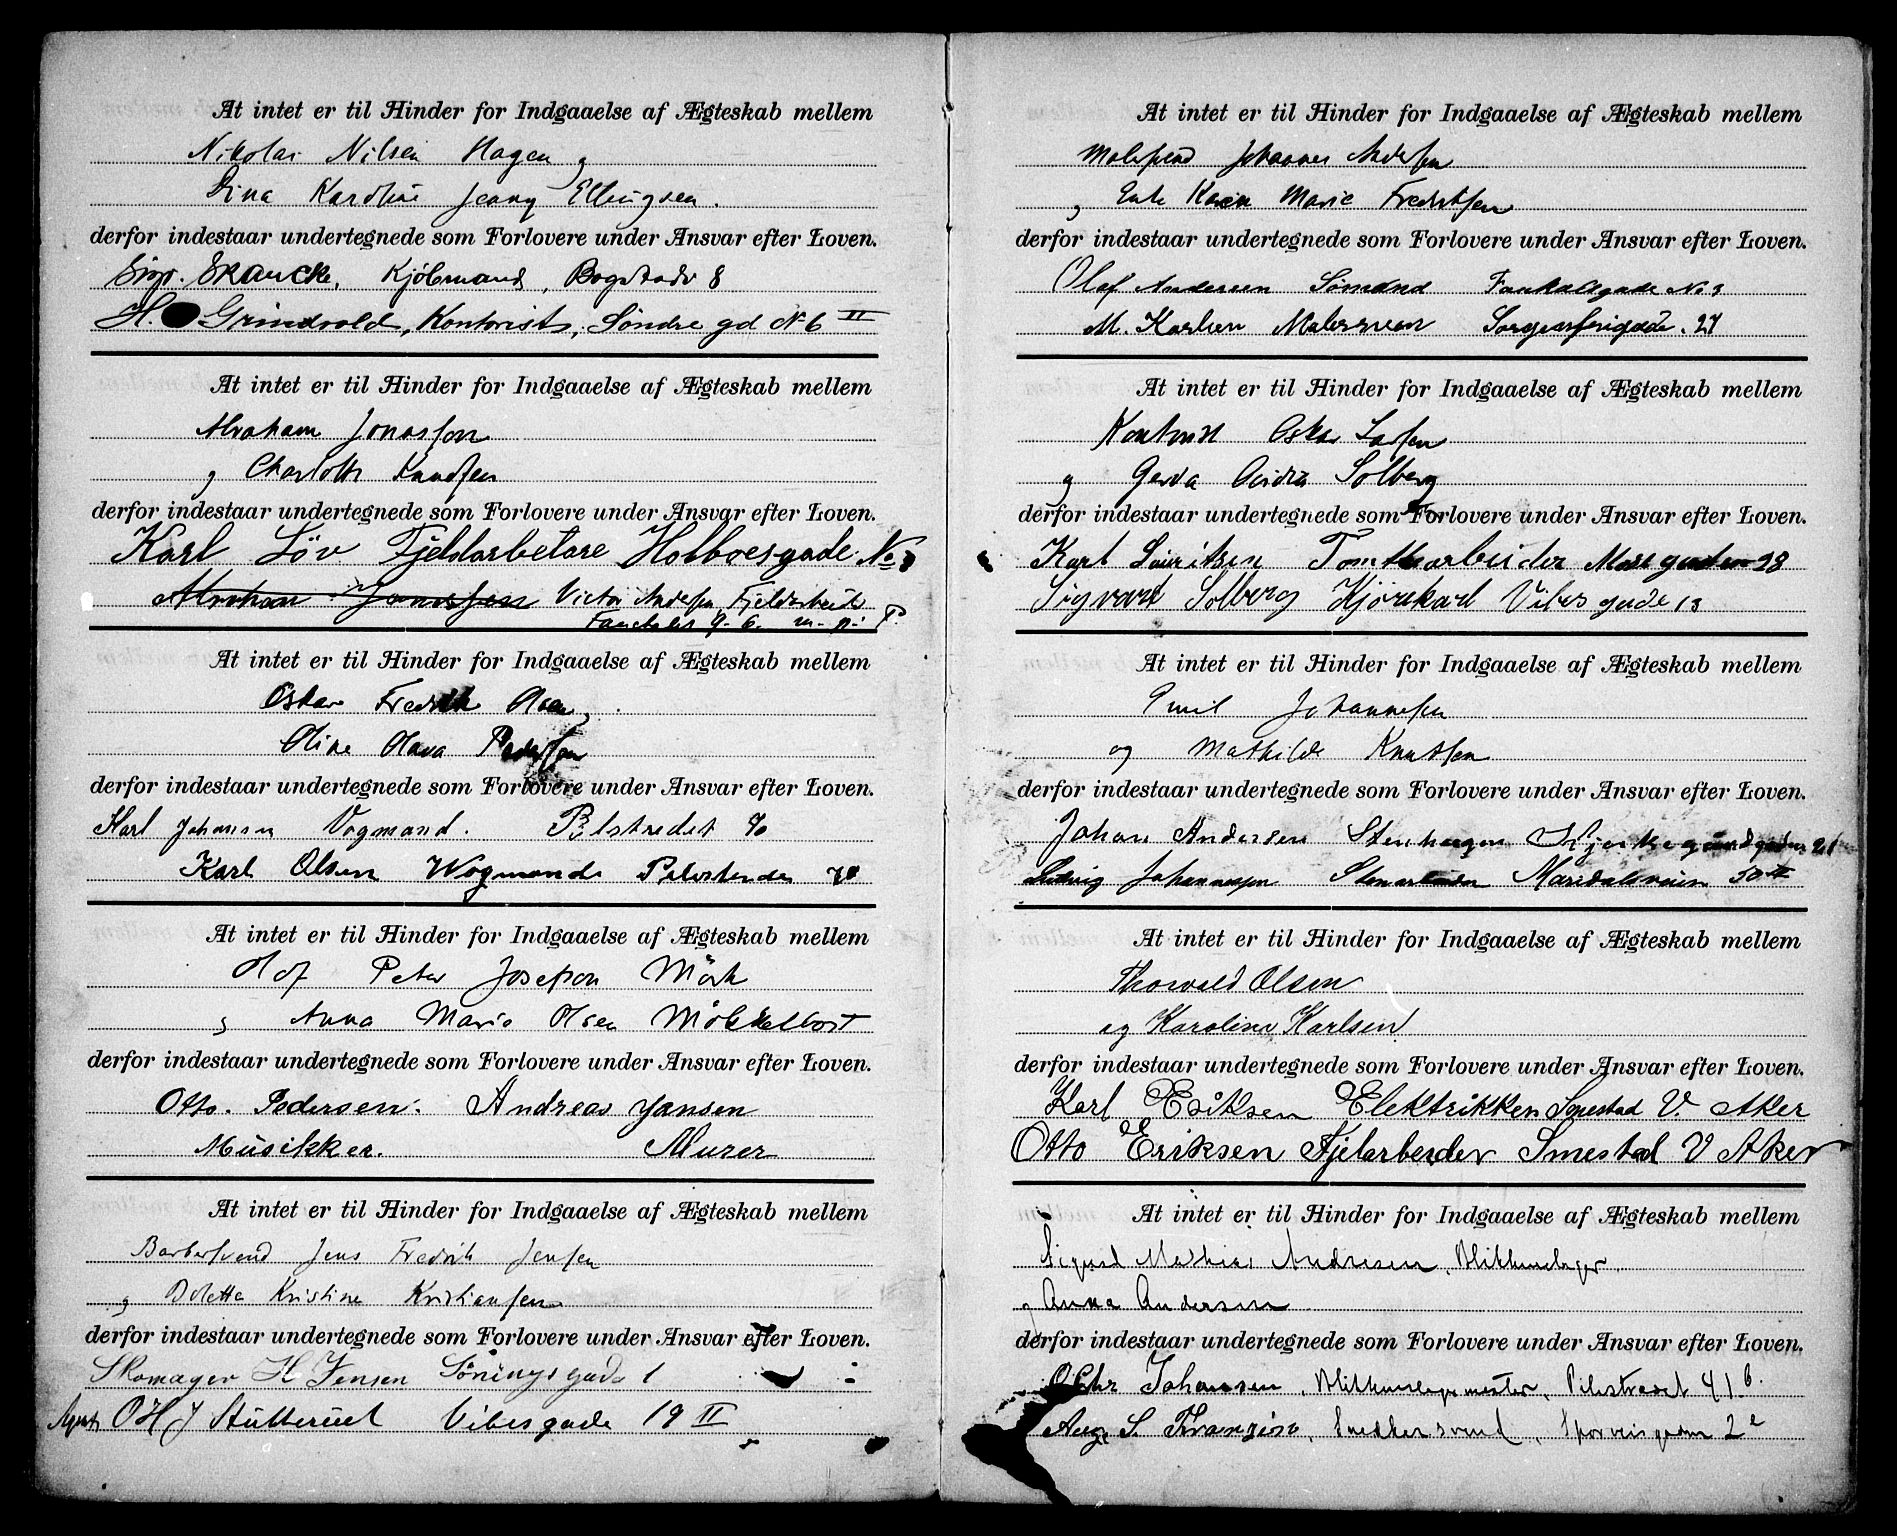 At intet er til Hinder for Indgaaelse af Ægteskab mellem
Nikolai Nilsen Hagen og
Lina Karoline Jenny Ellingsen.
derfor indestaar undertegnede som Forlovere under Ansvar efter Loven.
Skancke, Kjøbmand, Bogstadv 8
H. Grindvold, Kontorist, Søndre gd No 6 II
At intet er til Hinder for Indgaaelse af Ægteskab mellem
Abraham Jonassen
og Charlotte Knudsen
derfor indestaar undertegnede som Forlovere under Ansvar efter Loven.
Karl Löv Fjeldarbetare Holboesgade No
Abraham Jonassen Victor Andersen Fjeldarbeid
6
At intet er til Hinder for Indgaaelse af Ægteskab mellem
Oskar Fredrik Olsen
Oline Olava Pedersen
derfor indestaar undertegnede som Forlovere under Ansvar efter Loven.
Karl Johansen Vogmand. Pilstredet 70
Karl Olsen Wogmand 70
At intet er til Hinder for Indgaaelse af Ægteskab mellem
Olof Peter Josefson Mörk
og Anna Marie Olsen
derfor indestaar undertegnede som Forlovere under Ansvar efter Loven.
Otto. Pedersen. Andreas Jansen
Musikker. Murer
At intet er til Hinder for Indgaaelse af Ægteskab mellem
Barbersvend Jens Fredrik Jensen
og Doletta Kristine Kristiansen
derfor indestaar undertegnede som Forlovere under Ansvar efter Loven.
Skomager H Jensen Sörüngsgade 1
Agent O H J Stutterüd Vibesgade 19 II
At intet er til Hinder for Indgaaelse af Ægteskab mellem
Malersvend Johannes Andersen
og Enke Karen Marie Fredriksen
derfor indestaar undertegnede som Forlovere under Ansvar efter Loven.
Olaf Andersen Sömand No 3
M. Karlsen Malersven Sorgenfrigade. 27
At intet er til Hinder for Indgaaelse af Ægteskab mellem
Kontorist Oskar Larsen
og Gerda Solberg
derfor indestaar undertegnede som Forlovere under Ansvar efter Loven.
Karl Lauritsen Tomtearbeider Mossgaten 28
Sigvart Solberg Kjörekarl Vibes gade 13
At intet er til Hinder for Indgaaelse af Ægteskab mellem
Emil Johannesen
og Mathilde Knutsen
derfor indestaar undertegnede som Forlovere under Ansvar efter Loven.
Johan Andersen Stenhuger 21
Ludvig Johannesen Maridalsveien 50
At intet er til Hinder for Indgaaelse af Ægteskab mellem
Thorvald Olsen
og Karoline Karlsen
derfor indestaar undertegnede som Forlovere under Ansvar efter Loven.
Karl Eriksen Elektrikker Smestad V. Aker
Otto Eriksen Fjelarbeider Smestad V Aker
At intet er til Hinder for Indgaaelse af Ægteskab mellem
Sigurd Mathias Andresen, Blikkenslager.
og Anna Andersen
derfor indestaar undertegnede som Forlovere under Ansvar efter Loven.
Johansen, Blikkenslagermester, Pilestrædet 41 b.
Aug. S. Franzén, Snedkersvend, Sporveisgaden 2 e